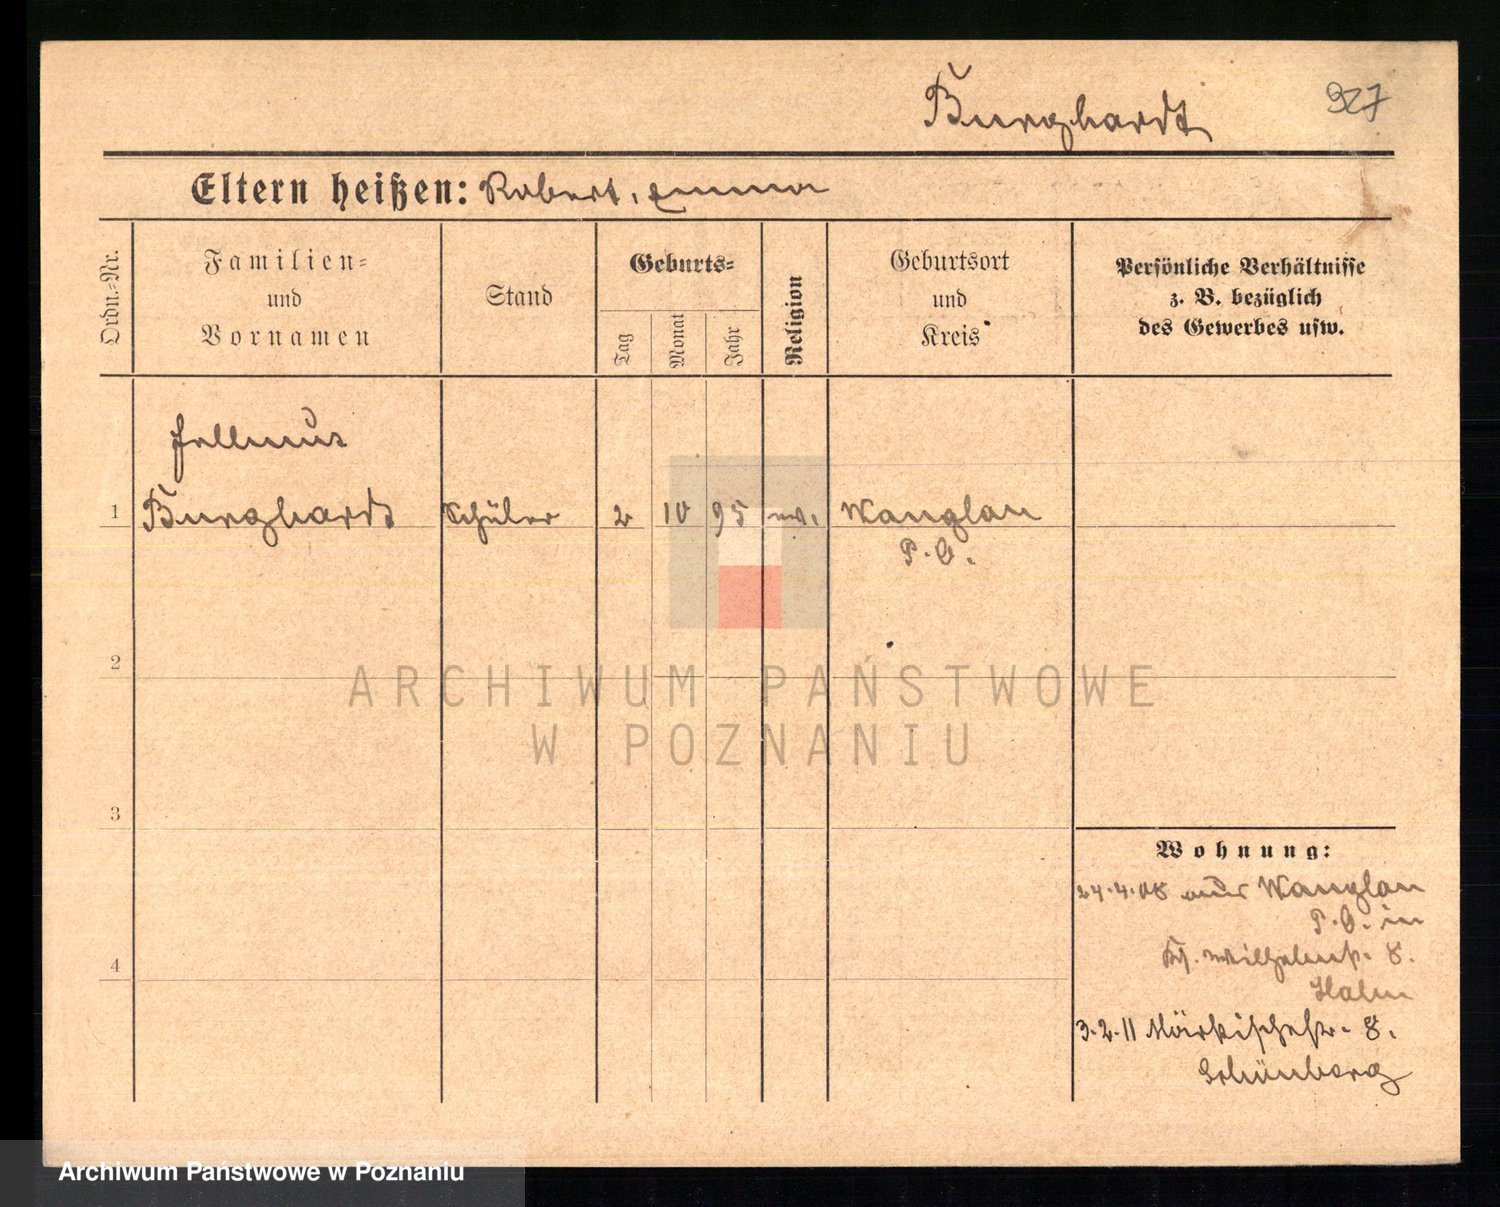 Burghardt
927
Eltern heißen: Robert, Emma
Ordn.-Nr.
Familien-
und
Vornamen
Stand
Geburts-
Tag
Monat
Jahr
Religion
Geburtsort
und
Kreis
Persönliche Verhältnisse
z. B. bezüglich
des Gewerbes usw.
Hellmut
1 Burghardt Schüler 2 10 95 ev. Wanglau
P. O.
2
ARCHIWUM PAŃSTWOWE
W POZNANIU
3
Wohnung:
24.4.08 aus Wanglau
P. O. in
4
Wilhelmstr. 8.
Halm
3.2.11 Märkischestr. 8.
Schönberg
Archiwum Państwowe w Poznaniu